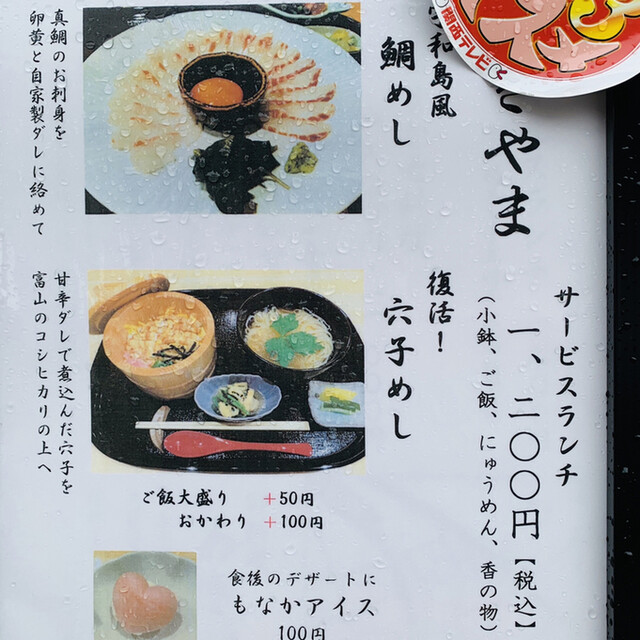 関西テレビ
やま
サービスランチ
一、二〇〇円【税込】
(小鉢、ご飯、にゅうめん、香の物)
和島風
鯛めし
真鯛のお刺身を
卵黄と自家製ダレに絡めて
復活!
穴子めし
甘辛ダレで煮込んだ穴子を
富山のコシヒカリの上へ
ご飯大盛り +50円
おかわり +100円
食後のデザートに
もなかアイス
100円